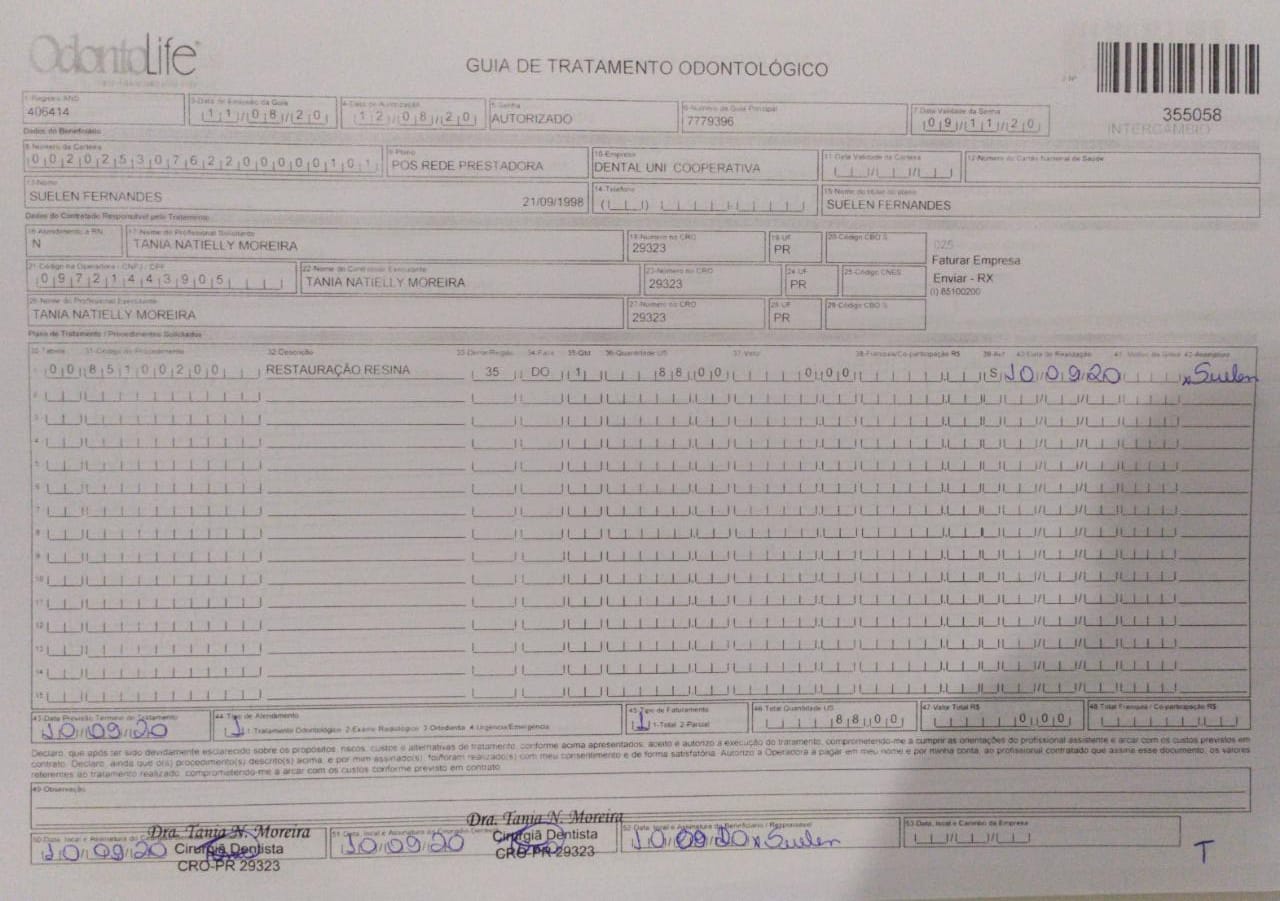 OdontoLife
GUIA DE TRATAMENTO ODONTOLÓGICO
2-Nº
355058
INTERCÂMBIO
1-Registro ANS
406414
3-Data de Emissão da Guia
11/08/20
4-Data de Autorização
12/08/20
5-Senha
AUTORIZADO
6-Número da Guia Principal
7779396
7-Data Validade da Senha
09/11/20
Dados do Beneficiário
8-Número da Carteira
00202530762200000101
9-Plano
POS REDE PRESTADORA
10-Empresa
DENTAL UNI COOPERATIVA
11-Data Validade da Carteira
12-Número do Cartão Nacional de Saúde
13-Nome
SUELEN FERNANDES 21/09/1998
14-Telefone
15-Nome do titular do plano
SUELEN FERNANDES
Dados do Contratado Responsável pelo Tratamento
16-Atendimento a RN
N
17-Nome do Profissional Solicitante
TANIA NATIELLY MOREIRA
18-Número no CRO
29323
19-UF
PR
20-Código CBO S
025
Faturar Empresa
Enviar - RX
(I) 85100200
21-Código na Operadora - CNPJ / CPF
09721443905
22-Nome do Contratado Executante
TANIA NATIELLY MOREIRA
23-Número no CRO
29323
24-UF
PR
25-Código CNES
26-Nome do Profissional Executante
TANIA NATIELLY MOREIRA
27-Número no CRO
29323
28-UF
PR
29-Código CBO S
Plano de Tratamento / Procedimentos Solicitados
30-Tabela 31-Código do Procedimento 32-Descrição 33-Dente/Região 34-Face 35-Qtd 36-Quantidade US 37-Valor 38-Franquia/Co-participação R$ 39-Aut 40-Data de Realização 42-Assinatura
00 85100200 RESTAURAÇÃO RESINA 35 DO 1 88 00 0 00 S 10/09/20 x Suelen
2
3
4
5
6
7
8
9
10
11
12
13
14
15
43-Data Previsão Término do Tratamento
10/09/20
44-Tipo de Atendimento
1 1-Tratamento Odontológico 2-Exame Radiológico 3-Ortodontia 4-Urgência/Emergência
45-Tipo de Faturamento
1 1-Total 2-Parcial
46-Total Quantidade US
88 00
47-Valor Total R$
0 00
48-Total Franquia / Co-participação R$
Declaro, que após ter sido devidamente esclarecido sobre os propósitos, riscos, custos e alternativas de tratamento, conforme acima apresentados, aceito e autorizo a execução do tratamento, comprometendo-me a cumprir as orientações do profissional assistente e arcar com os custos previstos em
contrato. Declaro, ainda que o(s) procedimento(s) descrito(s) acima, e por mim assinado(s), foi/foram realizado(s) com meu consentimento e de forma satisfatória. Autorizo a Operadora a pagar em meu nome e por minha conta, ao profissional contratado que assina esse documento, os valores
referentes ao tratamento realizado, comprometendo-me a arcar com os custos conforme previsto em contrato.
49-Observação
50-Data, local e Assinatura do
10/09/20
Dra. Tania N. Moreira
Cirurgiã Dentista
CRO-PR 29323
51-Data, local e Assinatura do Cirurgião Dentista
10/09/20
Dra. Tania N. Moreira
Cirurgiã Dentista
CRO-PR 29323
52-Data, local e Assinatura do Beneficiário / Responsável
10/09/20 x Suelen
53-Data, local e Carimbo da Empresa
T